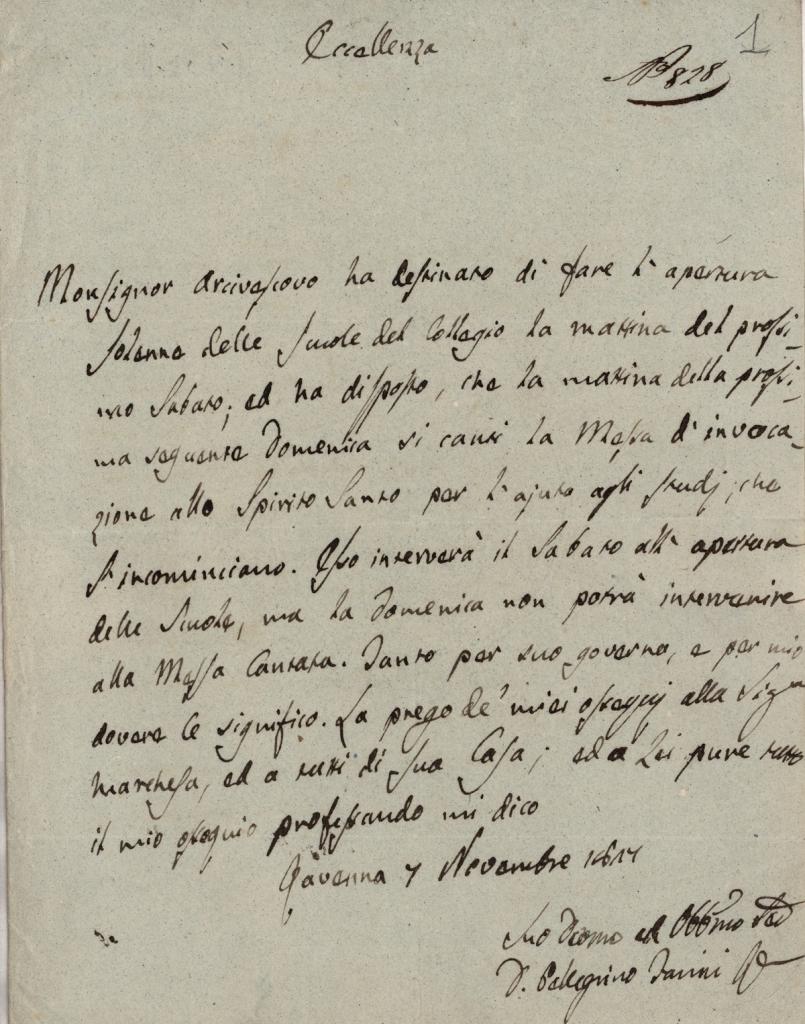 1
Eccellenza
N° 828
Monsignor Arcivescovo ha destinato di fare l'apertura
solenne delle Scuole del Collegio la mattina del prossi-
mo Sabato; ed ha disposto, che la mattina della prossi-
ma seguente Domenica si canti la Messa d'invoca-
zione allo Spirito Santo per l'ajuto agli studj, che
s'incominciano. Esso interverà il Sabato all'apertura
delle Scuole, ma la Domenica non potrà intervenire
alla Messa Cantata. Tanto per suo governo, e per mio
dovere le significo. La prego de' miei ossequj alla Sig.ra
Marchesa, ed a tutti di sua Casa; ed a Lei pure tutto
il mio ossequio professando mi dico
Ravenna 7 Novembre 1817
Suo Dvmo ed Obbmo
D. Pellegrino Tarini